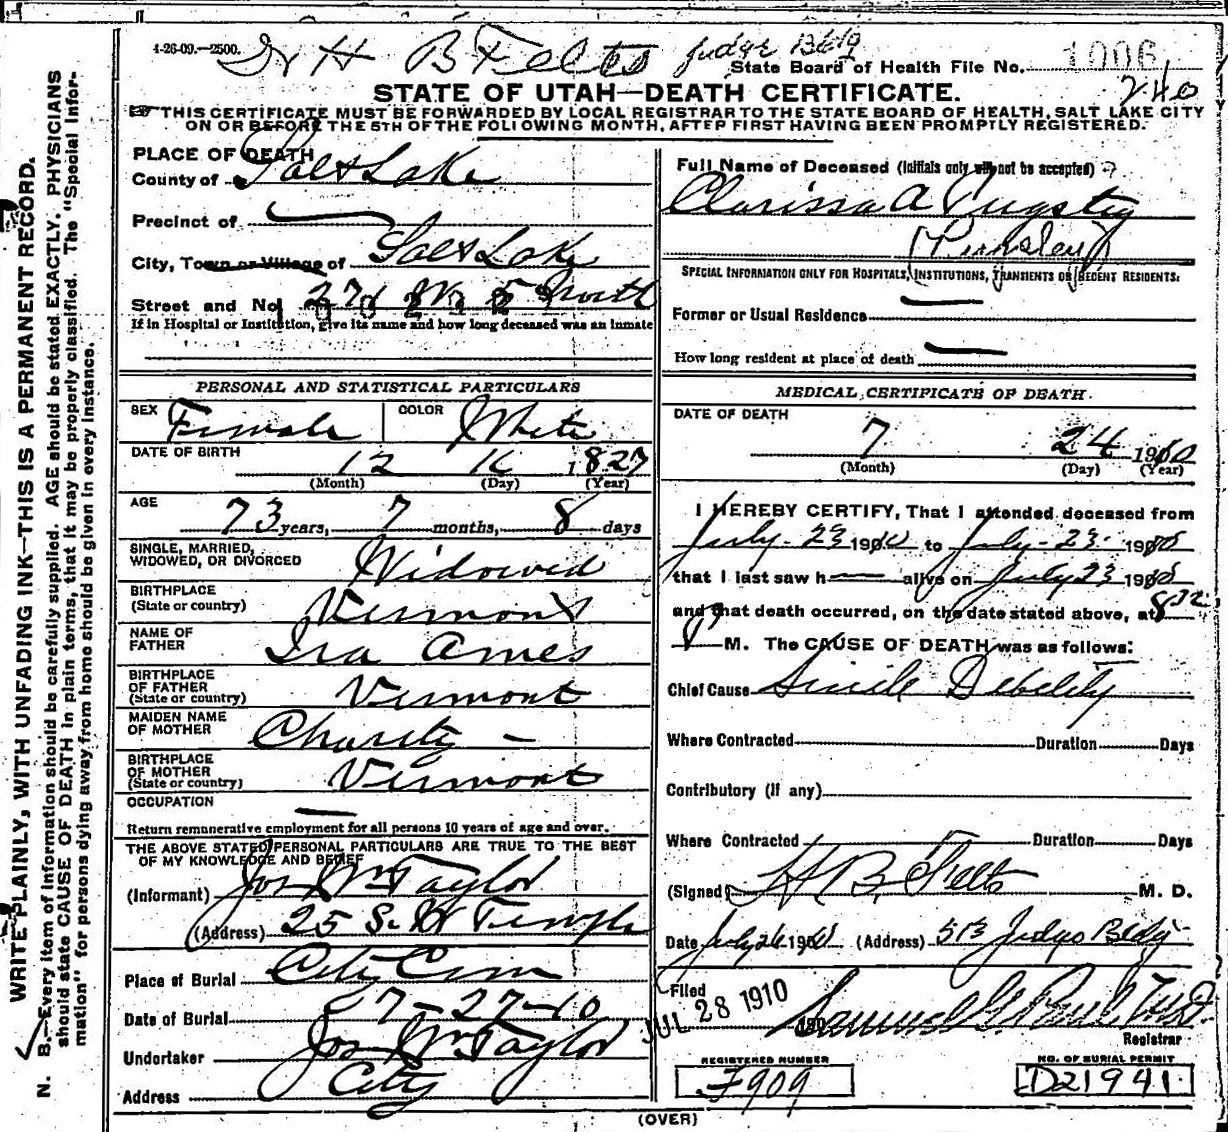 4-26-09.—2500. Dr H B Felts Judge Bldg
State Board of Health File No. 1006
240
STATE OF UTAH—DEATH CERTIFICATE.
THIS CERTIFICATE MUST BE FORWARDED BY LOCAL REGISTRAR TO THE STATE BOARD OF HEALTH, SALT LAKE CITY
ON OR BEFORE THE 5TH OF THE FOLLOWING MONTH, AFTER FIRST HAVING BEEN PROMPTLY REGISTERED.
PLACE OF DEATH
County of Salt Lake
Precinct of
City, Town or Village of Salt Lake
Street and No. W. 5 North
If in Hospital or Institution, give its name and how long deceased was an inmate
PERSONAL AND STATISTICAL PARTICULARS
SEX Female COLOR White
DATE OF BIRTH
12 16 1827
(Month) (Day) (Year)
AGE
73 years, 7 months, 8 days
SINGLE, MARRIED,
WIDOWED, OR DIVORCED Widowed
BIRTHPLACE
(State or country) Vermont
NAME OF
FATHER Ira Ames
BIRTHPLACE
OF FATHER
(State or country) Vermont
MAIDEN NAME
OF MOTHER Charity —
BIRTHPLACE
OF MOTHER
(State or country) Vermont
OCCUPATION
Return remunerative employment for all persons 10 years of age and over.
THE ABOVE STATED PERSONAL PARTICULARS ARE TRUE TO THE BEST
OF MY KNOWLEDGE AND BELIEF
(Informant) Jos Wm Taylor
(Address) 25 S. W Temple
Place of Burial City Cem
Date of Burial 7-27-10
Undertaker Jos Wm Taylor
Address City
Full Name of Deceased (Initials only will not be accepted)
Clarissa A
SPECIAL INFORMATION ONLY FOR HOSPITALS, INSTITUTIONS, TRANSIENTS OR RECENT RESIDENTS:
Former or Usual Residence
How long resident at place of death
MEDICAL CERTIFICATE OF DEATH.
DATE OF DEATH
7 24 1910
(Month) (Day) (Year)
I HEREBY CERTIFY, That I attended deceased from
July-23 1910 to July-23 1910
that I last saw h alive on July 23 1910
and that death occurred, on the date stated above, at
M. The CAUSE OF DEATH was as follows:
Chief Cause Sinile Debelity
Where Contracted Duration Days
Contributory (If any)
Where Contracted Duration Days
(Signed) H B. Felts M. D.
Date July 26 1910 (Address) 513 Judge Bldg
Filed
JUL 28 1910 Samuel G. Paul M.D.
Registrar
REGISTERED NUMBER
F909
NO. OF BURIAL PERMIT
D21941
(OVER)
WRITE PLAINLY, WITH UNFADING INK—THIS IS A PERMANENT RECORD.
N. B.—Every item of information should be carefully supplied. AGE should be stated EXACTLY. PHYSICIANS
should state CAUSE OF DEATH in plain terms, that it may be properly classified. The "Special Infor-
mation" for persons dying away from home should be given in every instance.